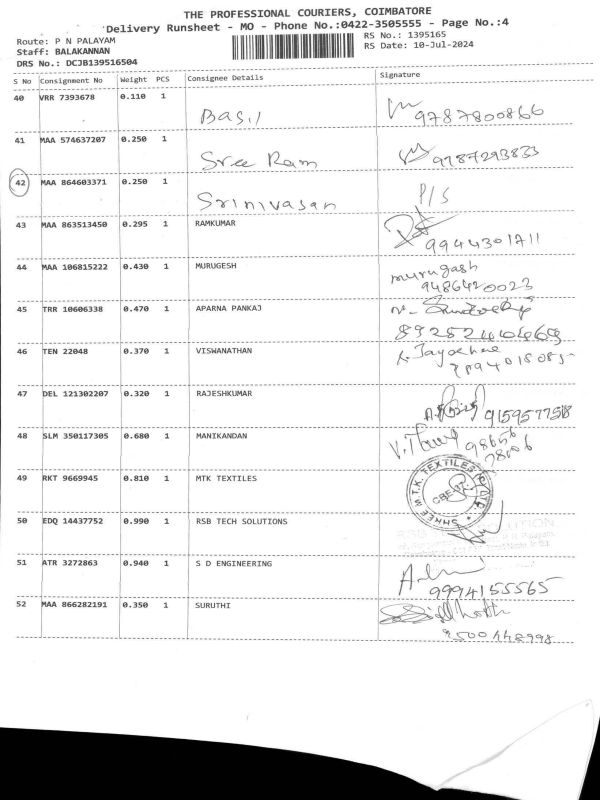 THE PROFESSIONAL COURIERS, COIMBATORE
Delivery Runsheet - MO - Phone No.:0422-3505555 - Page No.:4
Route: P N PALAYAM
RS No.: 1395165
Staff: BALAKANNAN
RS Date: 10-Jul-2024
DRS No.: DCJB139516504
S No Consignment No Weight PCS Consignee Details Signature
40 VRR 7393678 0.110 1 Basil 9787800866
41 MAA 574637207 0.250 1 Sree Ram 9787293833
42 MAA 864603371 0.250 1 Srinivasan P/S
43 MAA 863513450 0.295 1 RAMKUMAR
9944301711
44 MAA 106815222 0.430 1 MURUGESH murugash
9486420023
45 TRR 10606338 0.470 1 APARNA PANKAJ
46 TEN 22048 0.370 1 VISWANATHAN
47 DEL 121302207 0.320 1 RAJESHKUMAR
48 SLM 350117305 0.680 1 MANIKANDAN
98656
78006
49 RKT 9669945 0.810 1 MTK TEXTILES
SHREE M.T.K. TEXTILES (P) LTD.
CBE-37.
50 EDQ 14437752 0.990 1 RSB TECH SOLUTIONS
51 ATR 3272863 0.940 1 S D ENGINEERING
9994155565
52 MAA 866282191 0.350 1 SURUTHI
9500448998